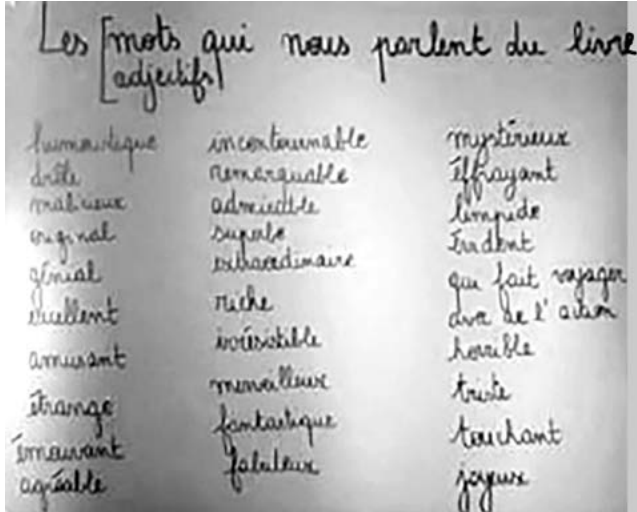 Les [mots qui nous parlent du livre
[adjectifs]
humoristique
drôle
malicieux
original
génial
excellent
amusant
étrange
émouvant
agréable
incontournable
remarquable
admirable
superbe
extraordinaire
riche
irrésistible
merveilleux
fantastique
fabuleux
mystérieux
éffrayant
limpide
Évident
qui fait voyager
avec de l'action
horrible
triste
touchant
joyeux